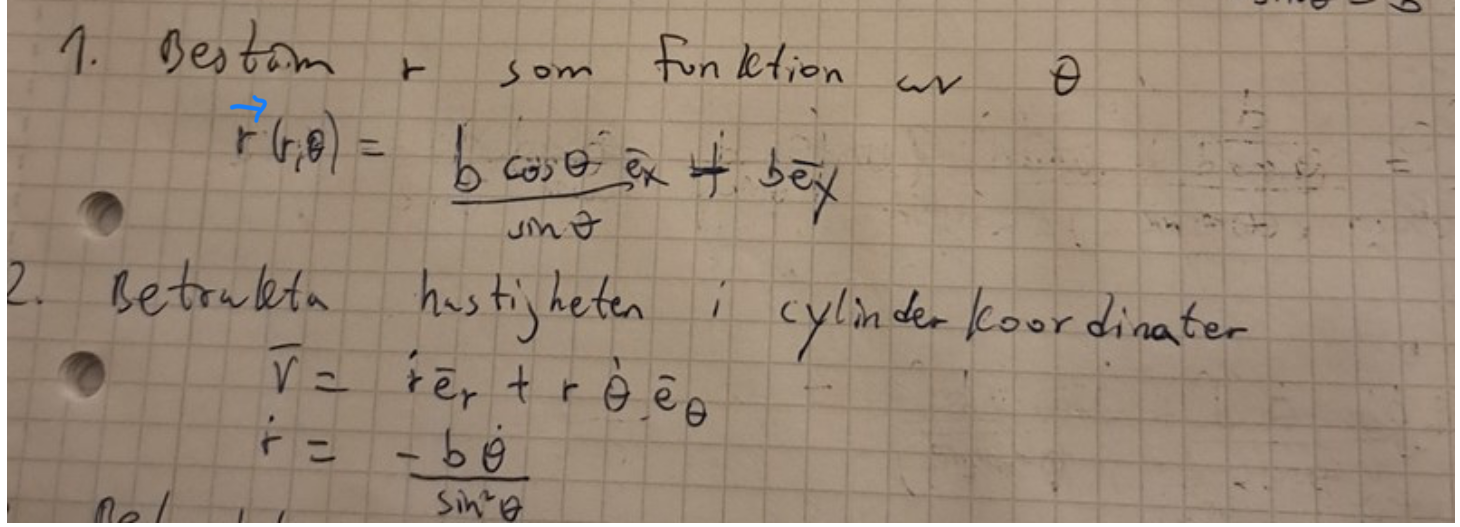 1. Bestäm r som funktion av θ
r⃗(r,θ) = b cosθ/sinθ ēx + bēy
2. Betrakta hastigheten i cylinderkoordinater
v̄ = ṙēr + rθ̇ēθ
ṙ = -bθ̇/sin²θ